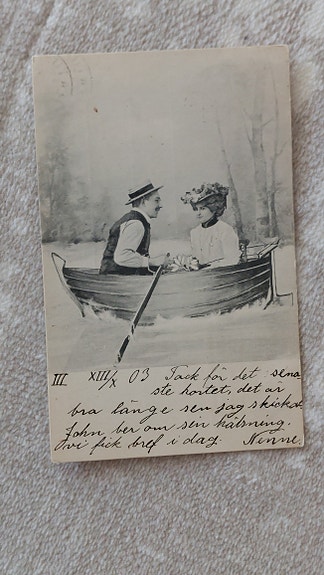 III XIII/X 03 Tack för det sena-
ste kortet, det är
bra länge sen jag skickat.
John ber om sen hälsning.
vi fick bref i dag. Ninne.